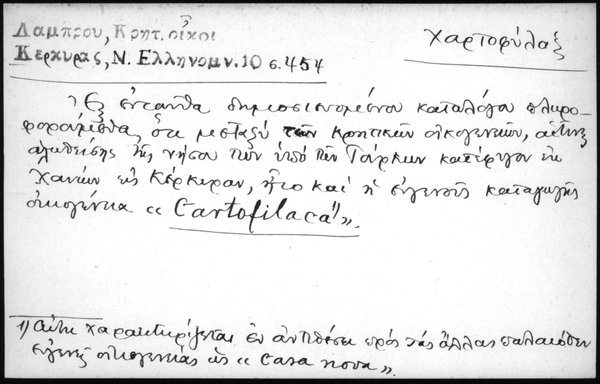 Λαμπρου, Κρητ. οἶκοι
Κερκυρας, Ν. Ελληνομν. 10 σ. 454
Χαρτοφύλαξ
Ἐξ ἐνταῦθα δημοσιευομένου καταλόγου πληρο-
φορούμεθα, ὅτι μεταξὺ τῶν κρητικῶν οἰκογενειῶν, αἵτινες
ἁλωθείσης τῆς νήσου ὑπὸ τῶν Τούρκων κατέφυγον ἐκ
Χανίων εἰς Κέρκυραν, ἦτο καὶ ἡ εὐγενοῦς καταγωγῆς
οἰκογένεια « Cartofilaca¹⁾ ».
1) Αὕτη χαρακτηρίζεται ἐν ἀντιθέσει πρὸς τὰς ἄλλας παλαιόθεν
εὐγενεῖς οἰκογενείας ὡς « casa nova ».